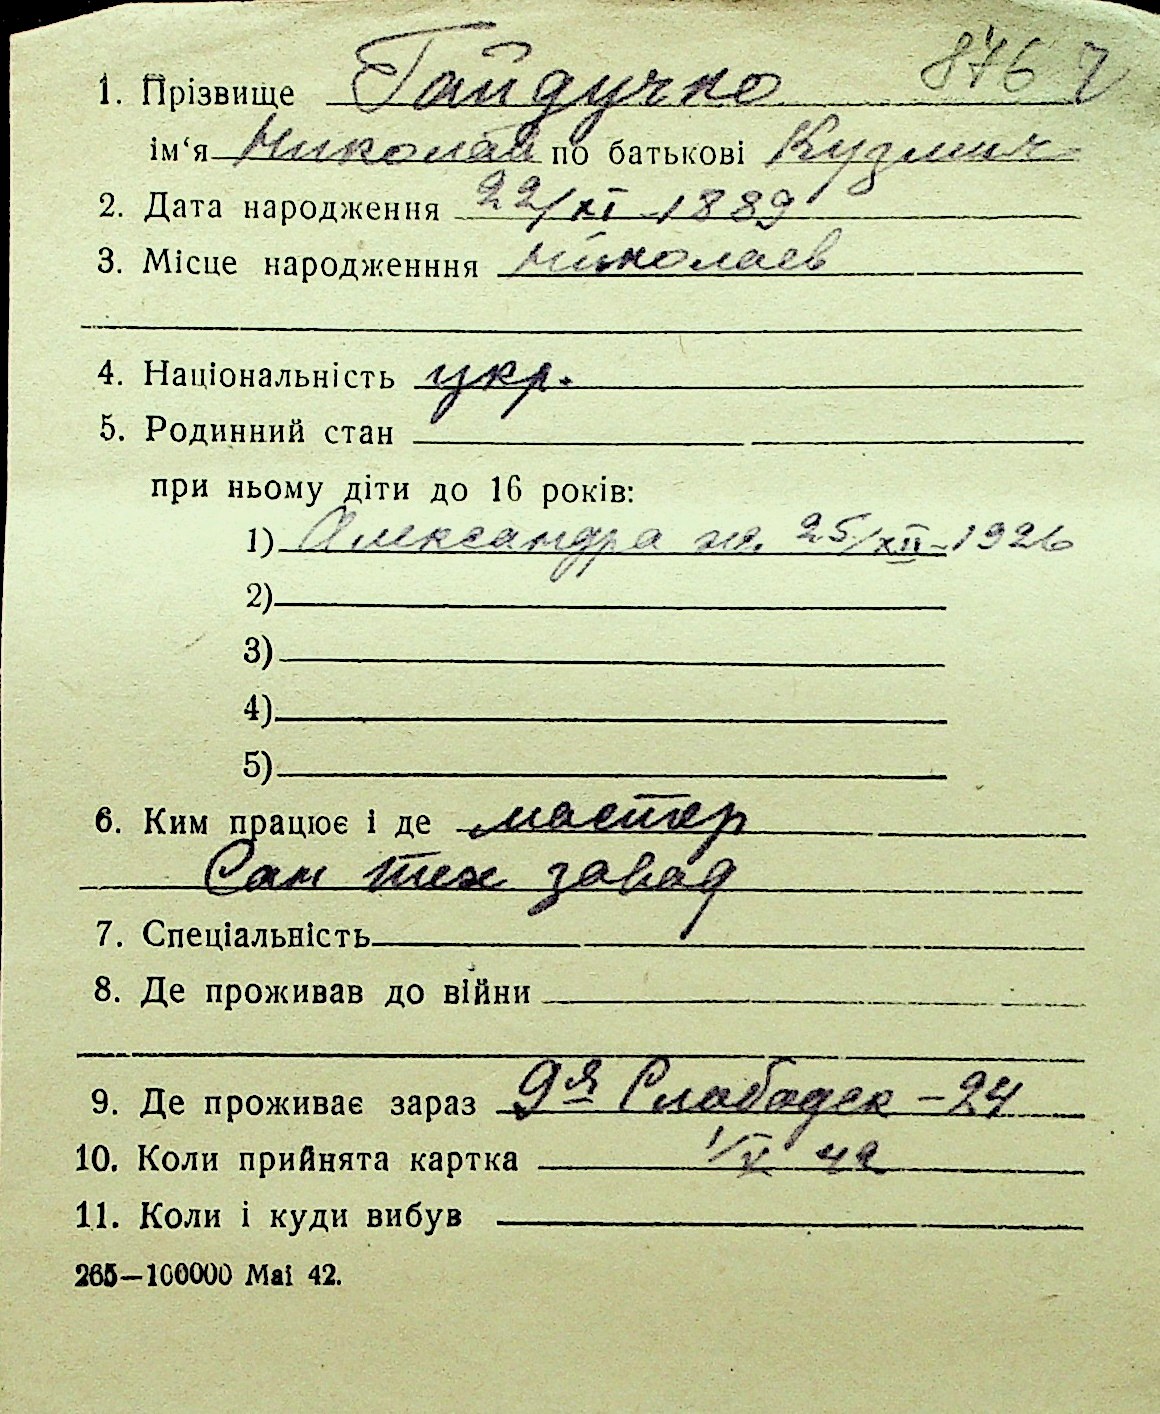 876 ч
1. Прізвище Гайдучко
ім‘я Николай по батькові Кузмич
2. Дата народження 22/XI-1889
3. Місце народженння Николаев
4. Національність укр.
5. Родинний стан
при ньому діти до 16 років:
1) Александра ж. 25/XII-1926
2)
3)
4)
5)
6. Ким працює і де мастер
Сан тех завод
7. Спеціальність
8. Де проживав до війни
9. Де проживає зараз 9я Слабадск - 24
10. Коли прийнята картка 1/V 42
11. Коли і куди вибув
265—100000 Mai 42.